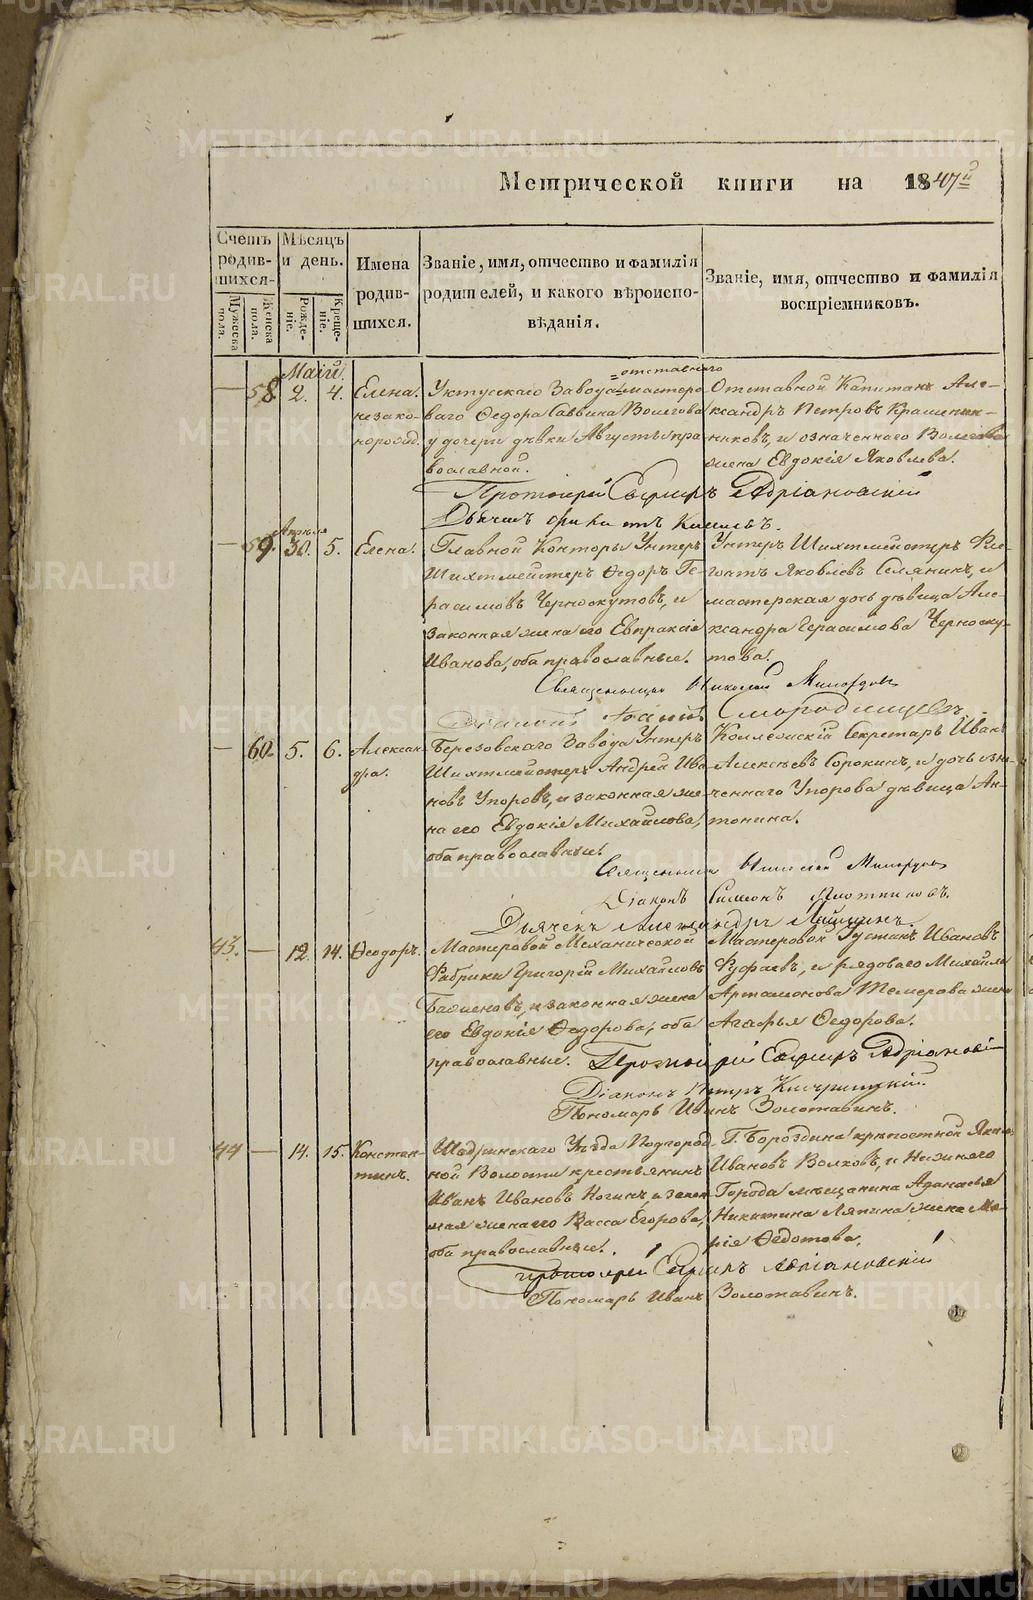 METRIKI.GASO-URAL.RU
Метрической книги на 1847й
Счетъ родившихся.
Мѣсяцъ и день.
Имена родившихся.
Званіе, имя, отчество и фамилія родителей, и какого вѣроисповѣданія.
Званіе, имя, отчество и фамилія воспріемниковъ.
Мужеска пола.
Женска пола.
Рожденіе.
Крещеніе.
Маій.
— 58. 2. 4. Елена. незаконорожд.
отставнаго
Уктусскаго Завода мастеро
ваго Ѳедора Саввина
у дочери дѣвки Августы пра
вославной.
Отставной Капитанъ Але-
ксандръ Петровъ
и означеннаго
жена Евдокія Яковлева.
Протоіерей Адріановскій
— 59. Апрѣля 30. 5. Елена.
Главной Конторы Унтеръ
Шихтмейстеръ Ѳедоръ Ге-
расимовъ Черноскутовъ, и
законная жена его Евпраксія
Иванова, оба православные.
Унтеръ Шихтмейстеръ
Яковлевъ Селянинъ, и
мастерская дочь дѣвица Але-
ксандра Герасимова Черноску-
това.
Священникъ Николай
Смородинцевъ.
— 60. 5. 6. Алексан-
дра.
Березовскаго Завода Унтеръ
Шихтмейстеръ Андрей Ива
новъ Упоровъ, и законная же-
на его Евдокія Михайлова,
оба православные.
Коллежскій Секретарь Иванъ
Алексѣевъ Сорокинъ, и дочь озна-
ченнаго Упорова дѣвица Ан-
тонина.
Священникъ Николай
Діаконъ Симеонъ Плотниковъ.
Дьячекъ Александръ
43. — 12. 14. Ѳеодоръ.
Мастеровой Механической
Фабрики Григорій Михайловъ
и законная жена
его Евдокія Ѳедорова, оба
православные.
Мастеровой Ивановъ
и рядоваго Михайла
Артамонова жена
Агафья Ѳедорова.
Протоіерей Адріановскій
Діаконъ Петръ
Пономарь Иванъ Золотавинъ.
44 — 14. 15. Констан-
тинъ.
Шадринскаго Уѣзда Подгород-
ной Волости крестьянинъ
Иванъ Ивановъ и закон-
ная жена его Васса Егорова,
оба православные.
Г. Бороздина крѣпостной
Ивановъ Волковъ, и Нижняго
Города мѣщанина Аѳанасья
Никитина Ляпина жена Ма-
рія Ѳедотова.
Протоіерей Адріановскій
Пономарь Иванъ Золотавинъ.